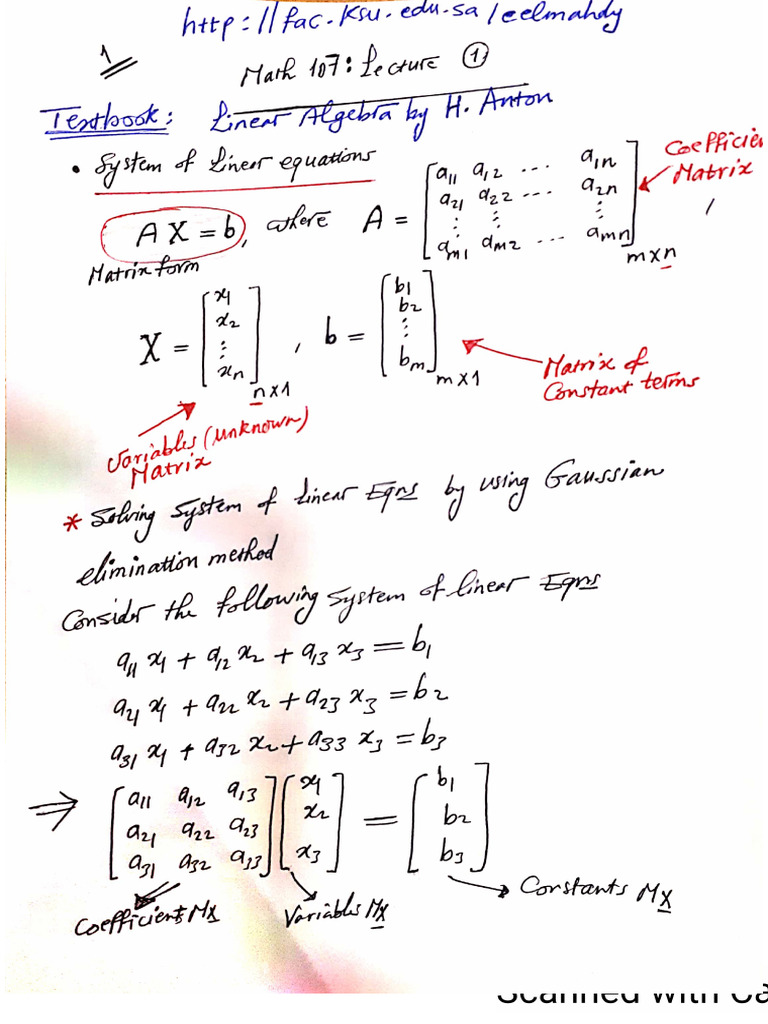 http://fac.ksu.edu.sa/eelmahdy
1
Math 107: Lecture ①
Textbook: Linear Algebra by H. Anton
• System of Linear equations
AX = b, where A = [a11 a12 ... a1n
a21 a22 ... a2n
⋮ ⋮ ⋮
am1 am2 ... amn] m×n
Coefficie
Matrix
Matrix form
X = [x1
x2
⋮
xn] n×1
, b = [b1
b2
⋮
bm] m×1
Matrix of
Constant terms
Variables (unknown)
Matrix
* Solving System of linear Eqns by using Gaussian
elimination method
Consider the following System of linear Eqns
a11 x1 + a12 x2 + a13 x3 = b1
a21 x1 + a22 x2 + a23 x3 = b2
a31 x1 + a32 x2 + a33 x3 = b3
⇒ [a11 a12 a13] [x1] = [b1]
[a21 a22 a23] [x2] [b2]
[a31 a32 a33] [x3] [b3]
Coefficients Mx
Variables Mx
Constants Mx
Scanned with Ca